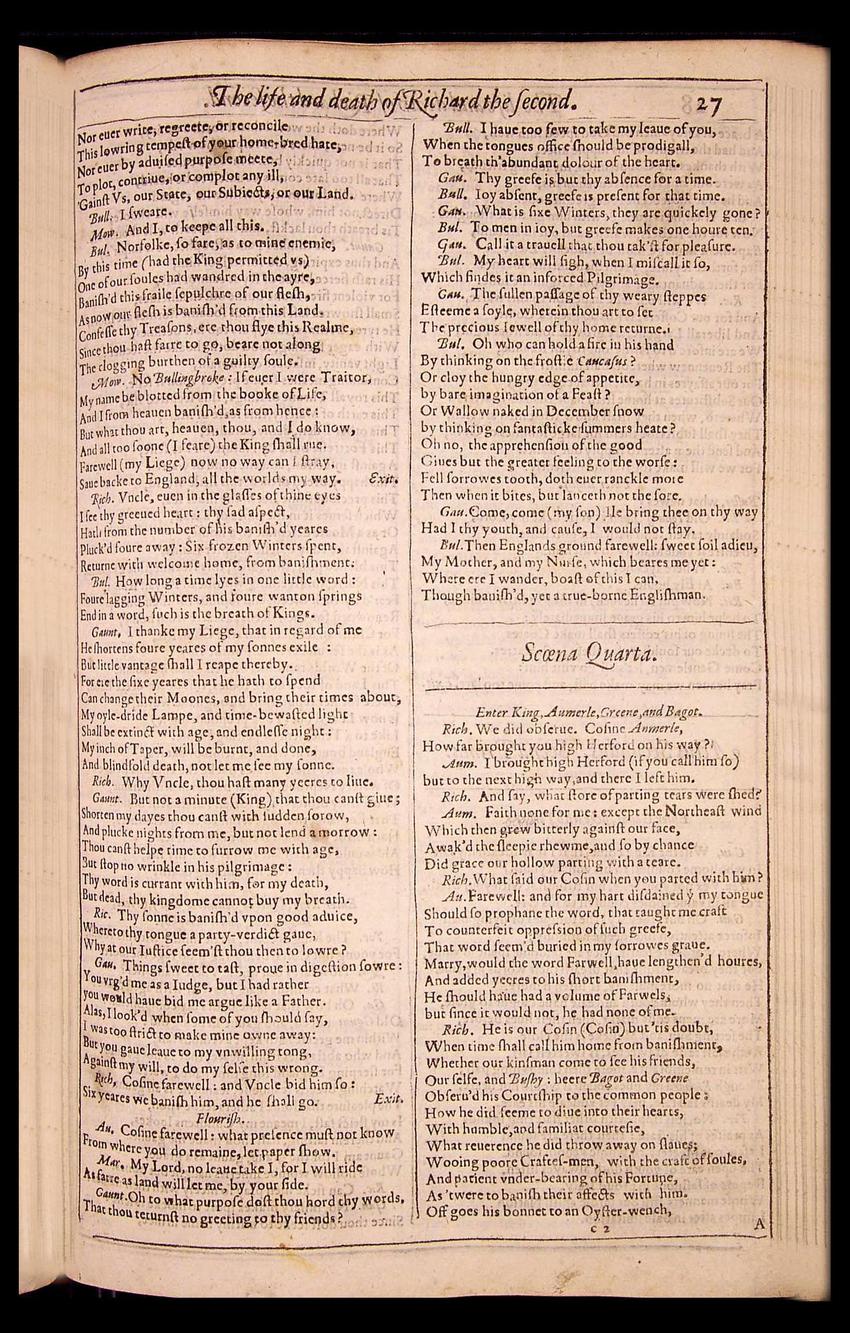 The life and death of Richard the second. 27
Nor euer write, regreete, or reconcile
This lowring tempest of your home-bred hate,
Nor euer by aduised purpose meete,
To plot, contriue, or complot any ill,
'Gainst Vs, our State, our Subiects, or our Land.
Bull. I sweare.
Mow. And I, to keepe all this.
Bul. Norfolke, so fare, as to mine enemie,
By this time (had the King permitted vs)
One of our soules had wandred in the ayre,
Banish'd this fraile sepulchre of our flesh,
As now our flesh is banish'd from this Land.
Confesse thy Treasons, ere thou flye this Realme,
Since thou hast farre to go, beare not along
The clogging burthen of a guilty soule.
Mow. No Bullingbroke: If euer I were Traitor,
My name be blotted from the booke of Life,
And I from heauen banish'd, as from hence:
But what thou art, heauen, thou, and I do know,
And all too soone (I feare) the King shall rue.
Farewell (my Liege) now no way can I stray,
Saue backe to England, all the worlds my way. Exit.
Rich. Vncle, euen in the glasses of thine eyes
I see thy greeued heart: thy sad aspect,
Hath from the number of his banish'd yeares
Pluck'd foure away: Six frozen Winters spent,
Returne with welcome home, from banishment.
Bul. How long a time lyes in one little word:
Foure lagging Winters, and foure wanton springs
End in a word, such is the breath of Kings.
Gaunt. I thanke my Liege, that in regard of me
He shortens foure yeares of my sonnes exile :
But little vantage shall I reape thereby.
For ere the sixe yeares that he hath to spend
Can change their Moones, and bring their times about,
My oyle-dride Lampe, and time-bewasted light
Shall be extinct with age, and endlesse night:
My inch of Taper, will be burnt, and done,
And blindfold death, not let me see my sonne.
Rich. Why Vncle, thou hast many yeeres to liue.
Gaunt. But not a minute (King) that thou canst giue;
Shorten my dayes thou canst with sudden sorow,
And plucke nights from me, but not lend a morrow:
Thou canst helpe time to furrow me with age,
But stop no wrinkle in his pilgrimage:
Thy word is currant with him, for my death,
But dead, thy kingdome cannot buy my breath.
Ric. Thy sonne is banish'd vpon good aduice,
Whereto thy tongue a party-verdict gaue,
Why at our Iustice seem'st thou then to lowre?
Gau. Things sweet to tast, proue in digestion sowre:
You vrg'd me as a Iudge, but I had rather
you would haue bid me argue like a Father.
Alas, I look'd when some of you should say,
I was too strict to make mine owne away:
But you gaue leaue to my vnwilling tong,
Against my will, to do my selfe this wrong.
Rich. Cosine farewell: and Vncle bid him so:
Six yeares we banish him, and he shall go. Exit.
Flourish.
Au. Cosine farewell: what presence must not know
From where you do remaine, let paper show.
Mar. My Lord, no leaue take I, for I will ride
As farre as land will let me, by your side.
Gaunt. Oh to what purpose dost thou hord thy words,
That thou returnst no greeting to thy friends?
Bull. I haue too few to take my leaue of you,
When the tongues office should be prodigall,
To breath th'abundant dolour of the heart.
Gau. Thy greefe is but thy absence for a time.
Bull. Ioy absent, greefe is present for that time.
Gau. What is sixe Winters, they are quickely gone?
Bul. To men in ioy, but greefe makes one houre ten.
Gau. Call it a trauell that thou tak'st for pleasure.
Bul. My heart will sigh, when I miscall it so,
Which findes it an inforced Pilgrimage.
Gau. The sullen passage of thy weary steppes
Esteeme a soyle, wherein thou art to set
The precious Iewell of thy home returne.
Bul. Oh who can hold a fire in his hand
By thinking on the frostie Caucasus?
Or cloy the hungry edge of appetite,
by bare imagination of a Feast?
Or Wallow naked in December snow
by thinking on fantasticke summers heate?
Oh no, the apprehension of the good
Giues but the greater feeling to the worse:
Fell sorrowes tooth, doth euer ranckle more
Then when it bites, but lanceth not the sore.
Gau. Come, come (my son) Ile bring thee on thy way
Had I thy youth, and cause, I would not stay.
Bul. Then Englands ground farewell: sweet soil adieu,
My Mother, and my Nurse, which beares me yet:
Where ere I wander, boast of this I can,
Though banish'd, yet a true-borne Englishman.
Scœna Quarta.
Enter King, Aumerle, Greene, and Bagot.
Rich. We did obserue. Cosine Aumerle,
How far brought you high Herford on his way?
Aum. I brought high Herford (if you call him so)
but to the next high way, and there I left him.
Rich. And say, what store of parting tears were shed?
Aum. Faith none for me: except the Northeast wind
Which then grew bitterly against our face,
Awak'd the sleepie rhewme, and so by chance
Did grace our hollow parting with a teare.
Rich. What said our Cosin when you parted with him?
Au. Farewell: and for my hart disdained yͭ my tongue
Should so prophane the word, that taught me craft
To counterfeit oppression of such greefe,
That word seem'd buried in my sorrowes graue.
Marry, would the word Farwell, haue lengthen'd houres,
And added yeeres to his short banishment,
He should haue had a volume of Farwels,
but since it would not, he had none of me.
Rich. He is our Cosin (Cosin) but 'tis doubt,
When time shall call him home from banishment,
Whether our kinsman come to see his friends,
Our selfe, and Bushy: heere Bagot and Greene
Obseru'd his Courtship to the common people:
How he did seeme to diue into their hearts,
With humble, and familiar courtesie,
What reuerence he did throw away on slaues;
Wooing poore Craftes-men, with the craft of soules,
And patient vnder-bearing of his Fortune,
As 'twere to banish their affects with him.
Off goes his bonnet to an Oyster-wench,
c 2 A